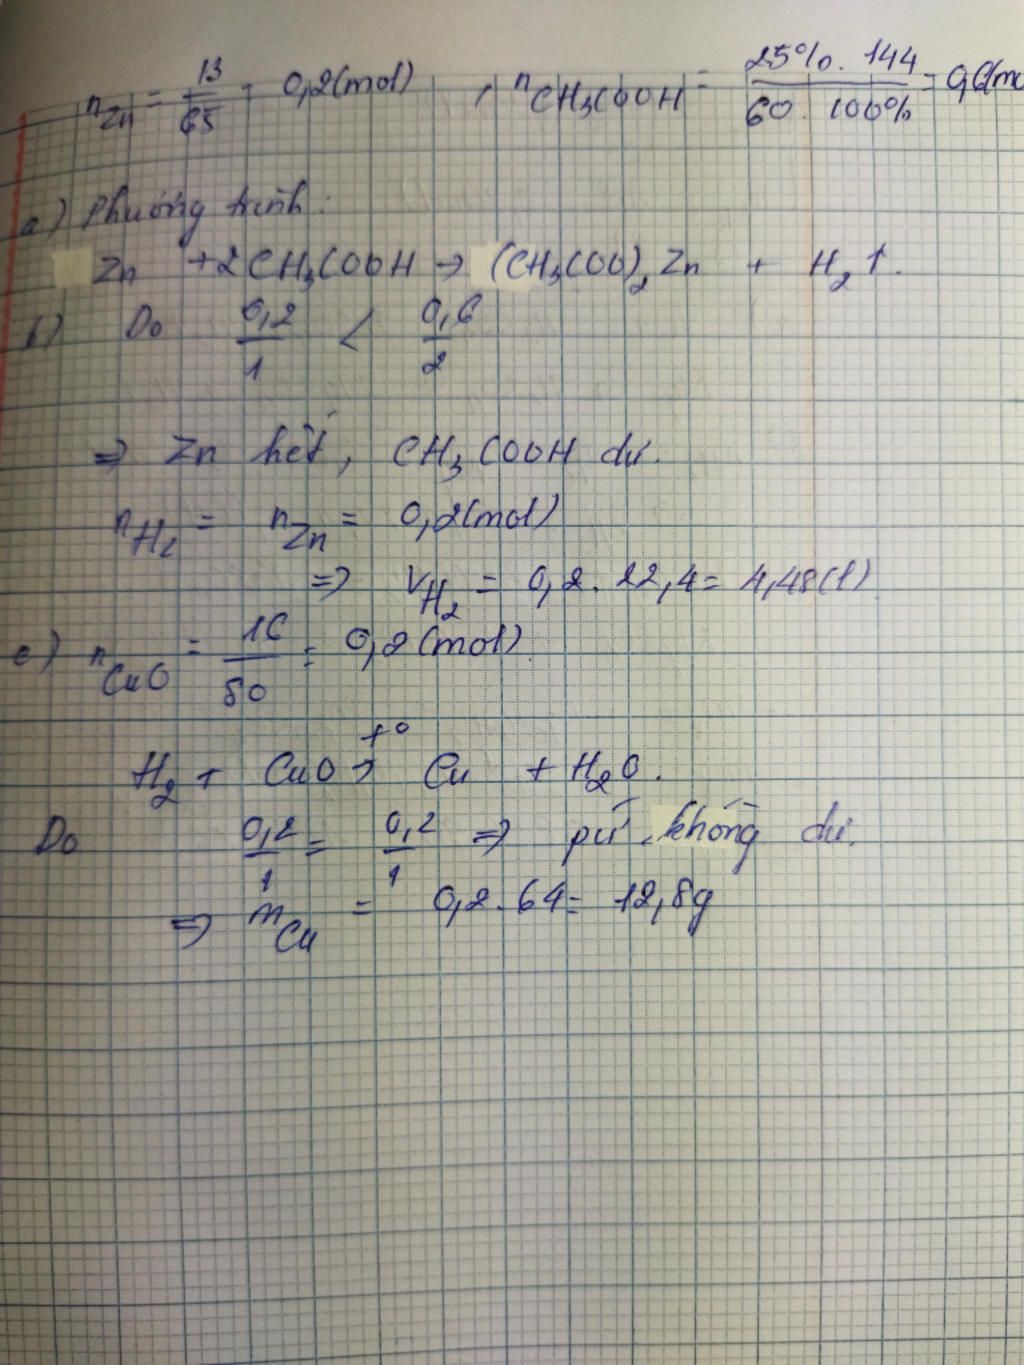 nZn = 13/65 = 0,2(mol) , nCH3COOH = 25%. 144/60. 100% = 0,6(mo
a) Phương trình:
Zn + 2CH3COOH → (CH3COO)2Zn + H2↑.
b) Do 0,2/1 < 0,6/2
⇒ Zn hết, CH3COOH dư.
nH2 = nZn = 0,2(mol)
⇒ VH2 = 0,2. 22,4 = 4,48(l)
c) nCuO = 16/80 = 0,2(mol).
H2 + CuO t°→ Cu + H2O.
Do 0,2/1 = 0,2/1 ⇒ pứ không dư.
⇒ mCu = 0,2.64 = 12,8g